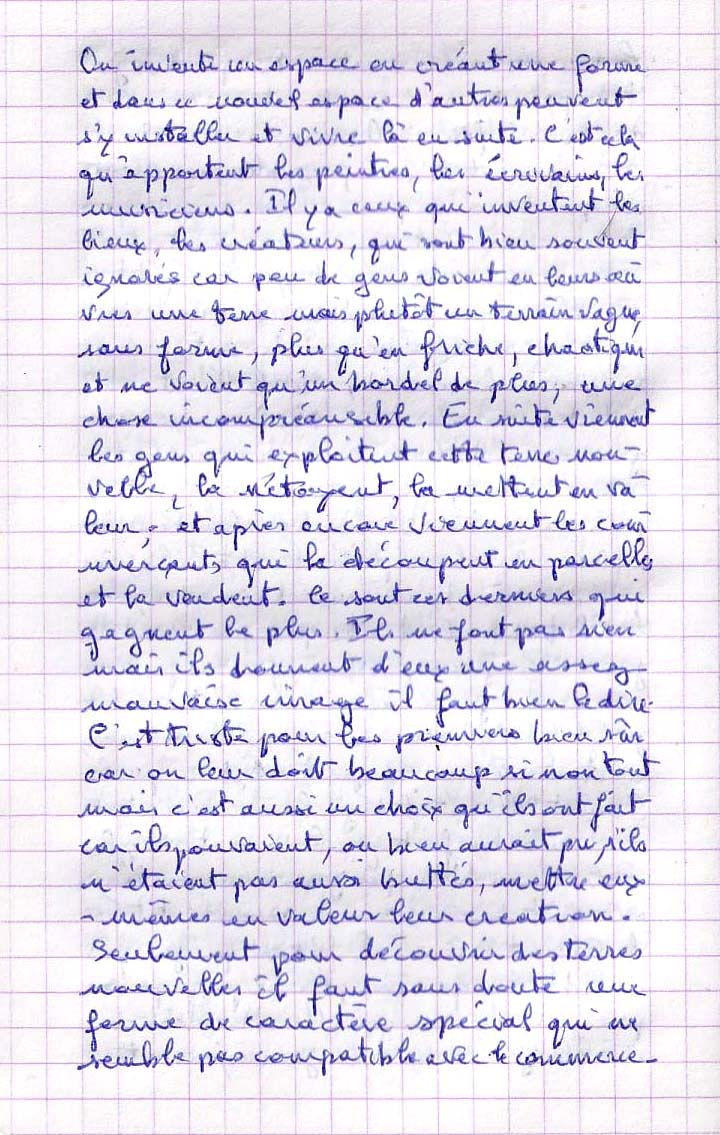 On invente un espace en créant une forme
et dans ce nouvel espace d'autres peuvent
s'y installer et vivre là en suite. C'est cela
qu'apportent les peintres, les écrivains, les
musiciens. Il y a ceux qui inventent les
lieux, les créateurs, qui sont bien souvent
ignorés car peu de gens voient en leurs œu
vres une terre mais plutôt un terrain vague,
sans forme, plus qu'en friche, chaotique
et ne voient qu'un bordel de plus, une
chose incompréansible. En suite viennent
les gens qui exploitent cette terre nou-
velle, la nétoyent, la mettent en va
leur, et après encore viennent les com
merçants qui la découpent en parcelles
et la vendent. Ce sont ces derniers qui
gagnent le plus. Ils ne font pas rien
mais ils donnent d'eux une assez
mauvaise image il faut bien le dire.
C'est triste pour les premiers bien sûr
car on leur doit beaucoup si non tout
mais c'est aussi un choix qu'ils ont fait
car ils pouvaient, ou bien aurait pu, s'ils
n'étaient pas aussi buttés, mettre eux
-mêmes en valeur leur création.
Seulement pour découvrir des terres
nouvelles il faut sans doute une
forme de caractère spécial qui ne
semble pas compatible avec le commerce.